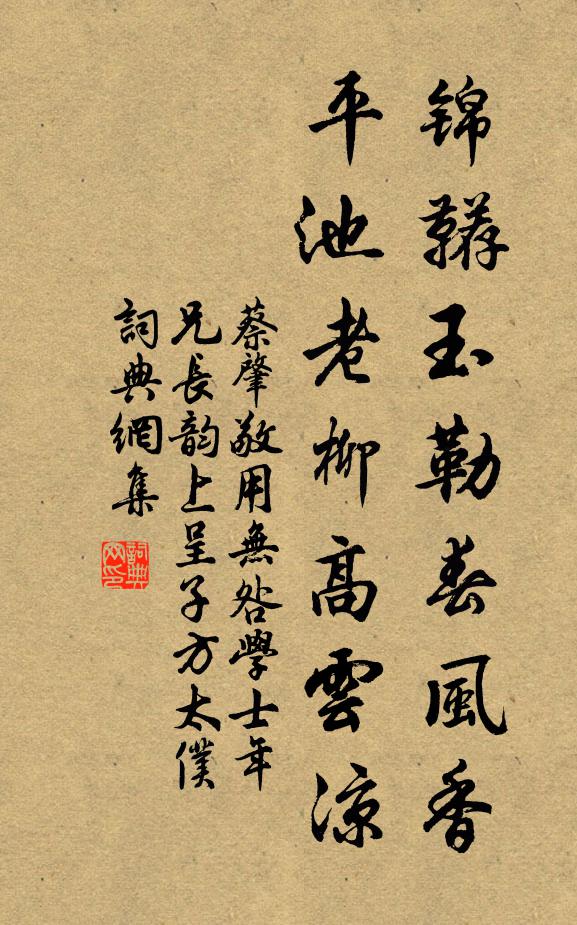 锦鞯玉勒春風香
平池老柳高雲涼
蔡肇敬用無咎學士年
兄長韵上呈子方太僕
詞典網集
詞典網印